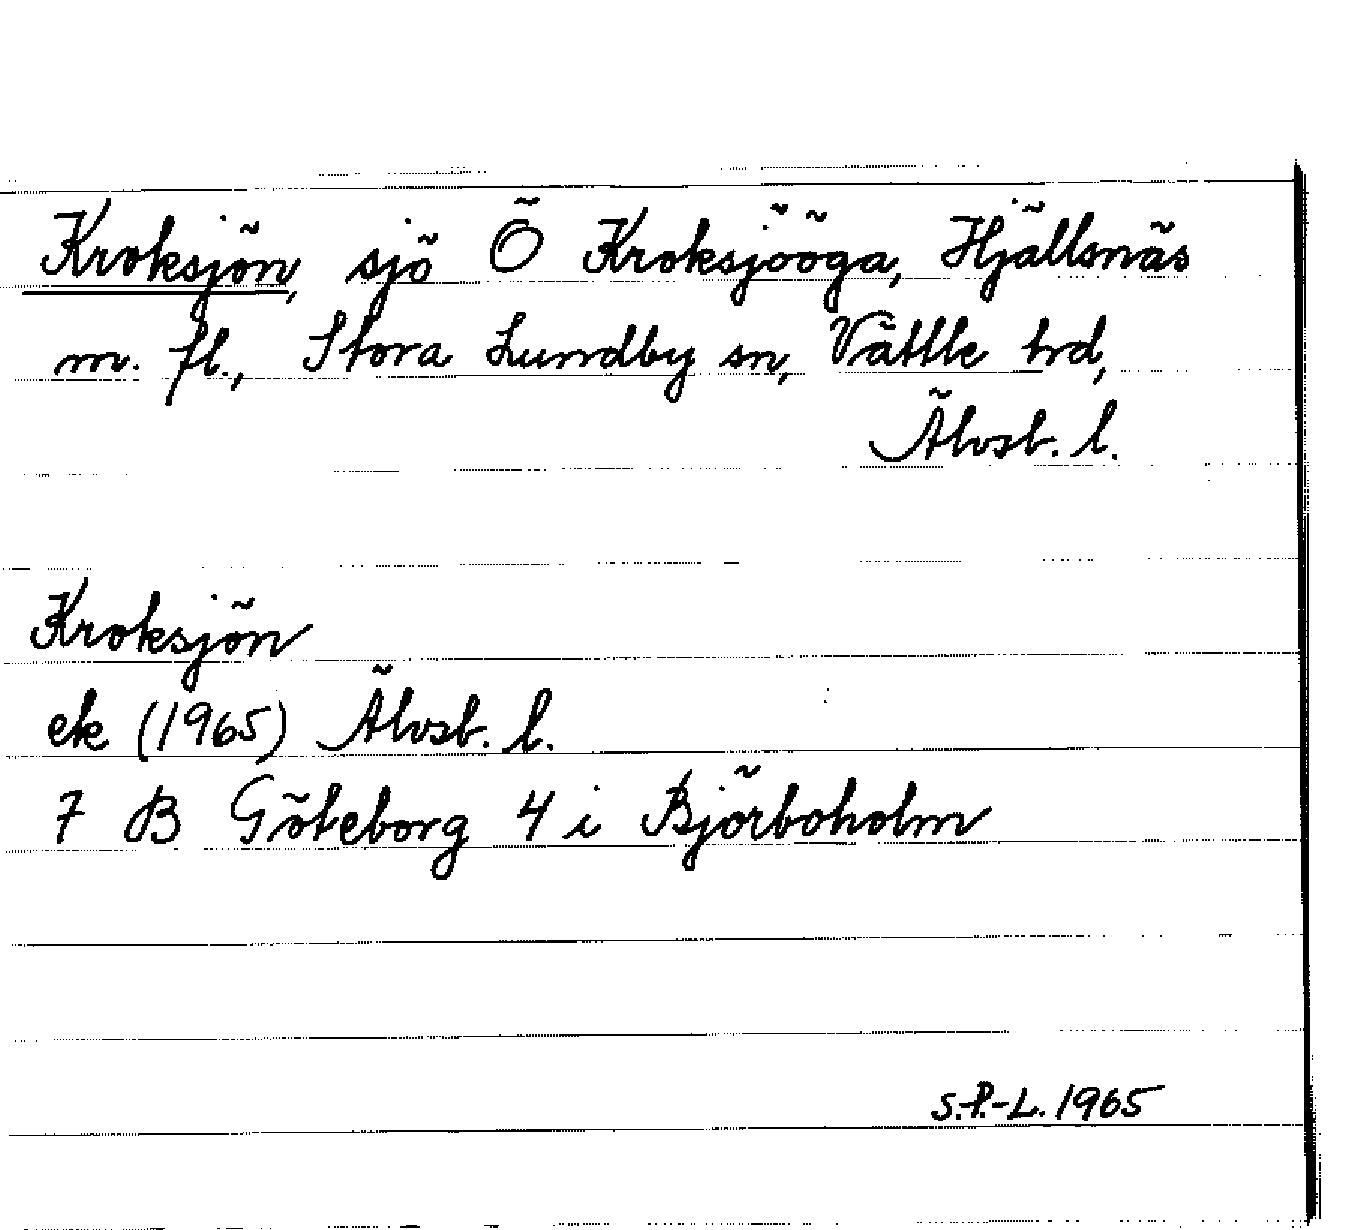 Kroksjön, sjö Ö Kroksjööga, Hjällsnäs
m. fl., Stora Lundby sn, Vättle hd,
Älvsb. l.
Kroksjön
ek (1965) Älvsb. l.
7 B Göteborg 4 i Björboholm
S.P.-L. 1965